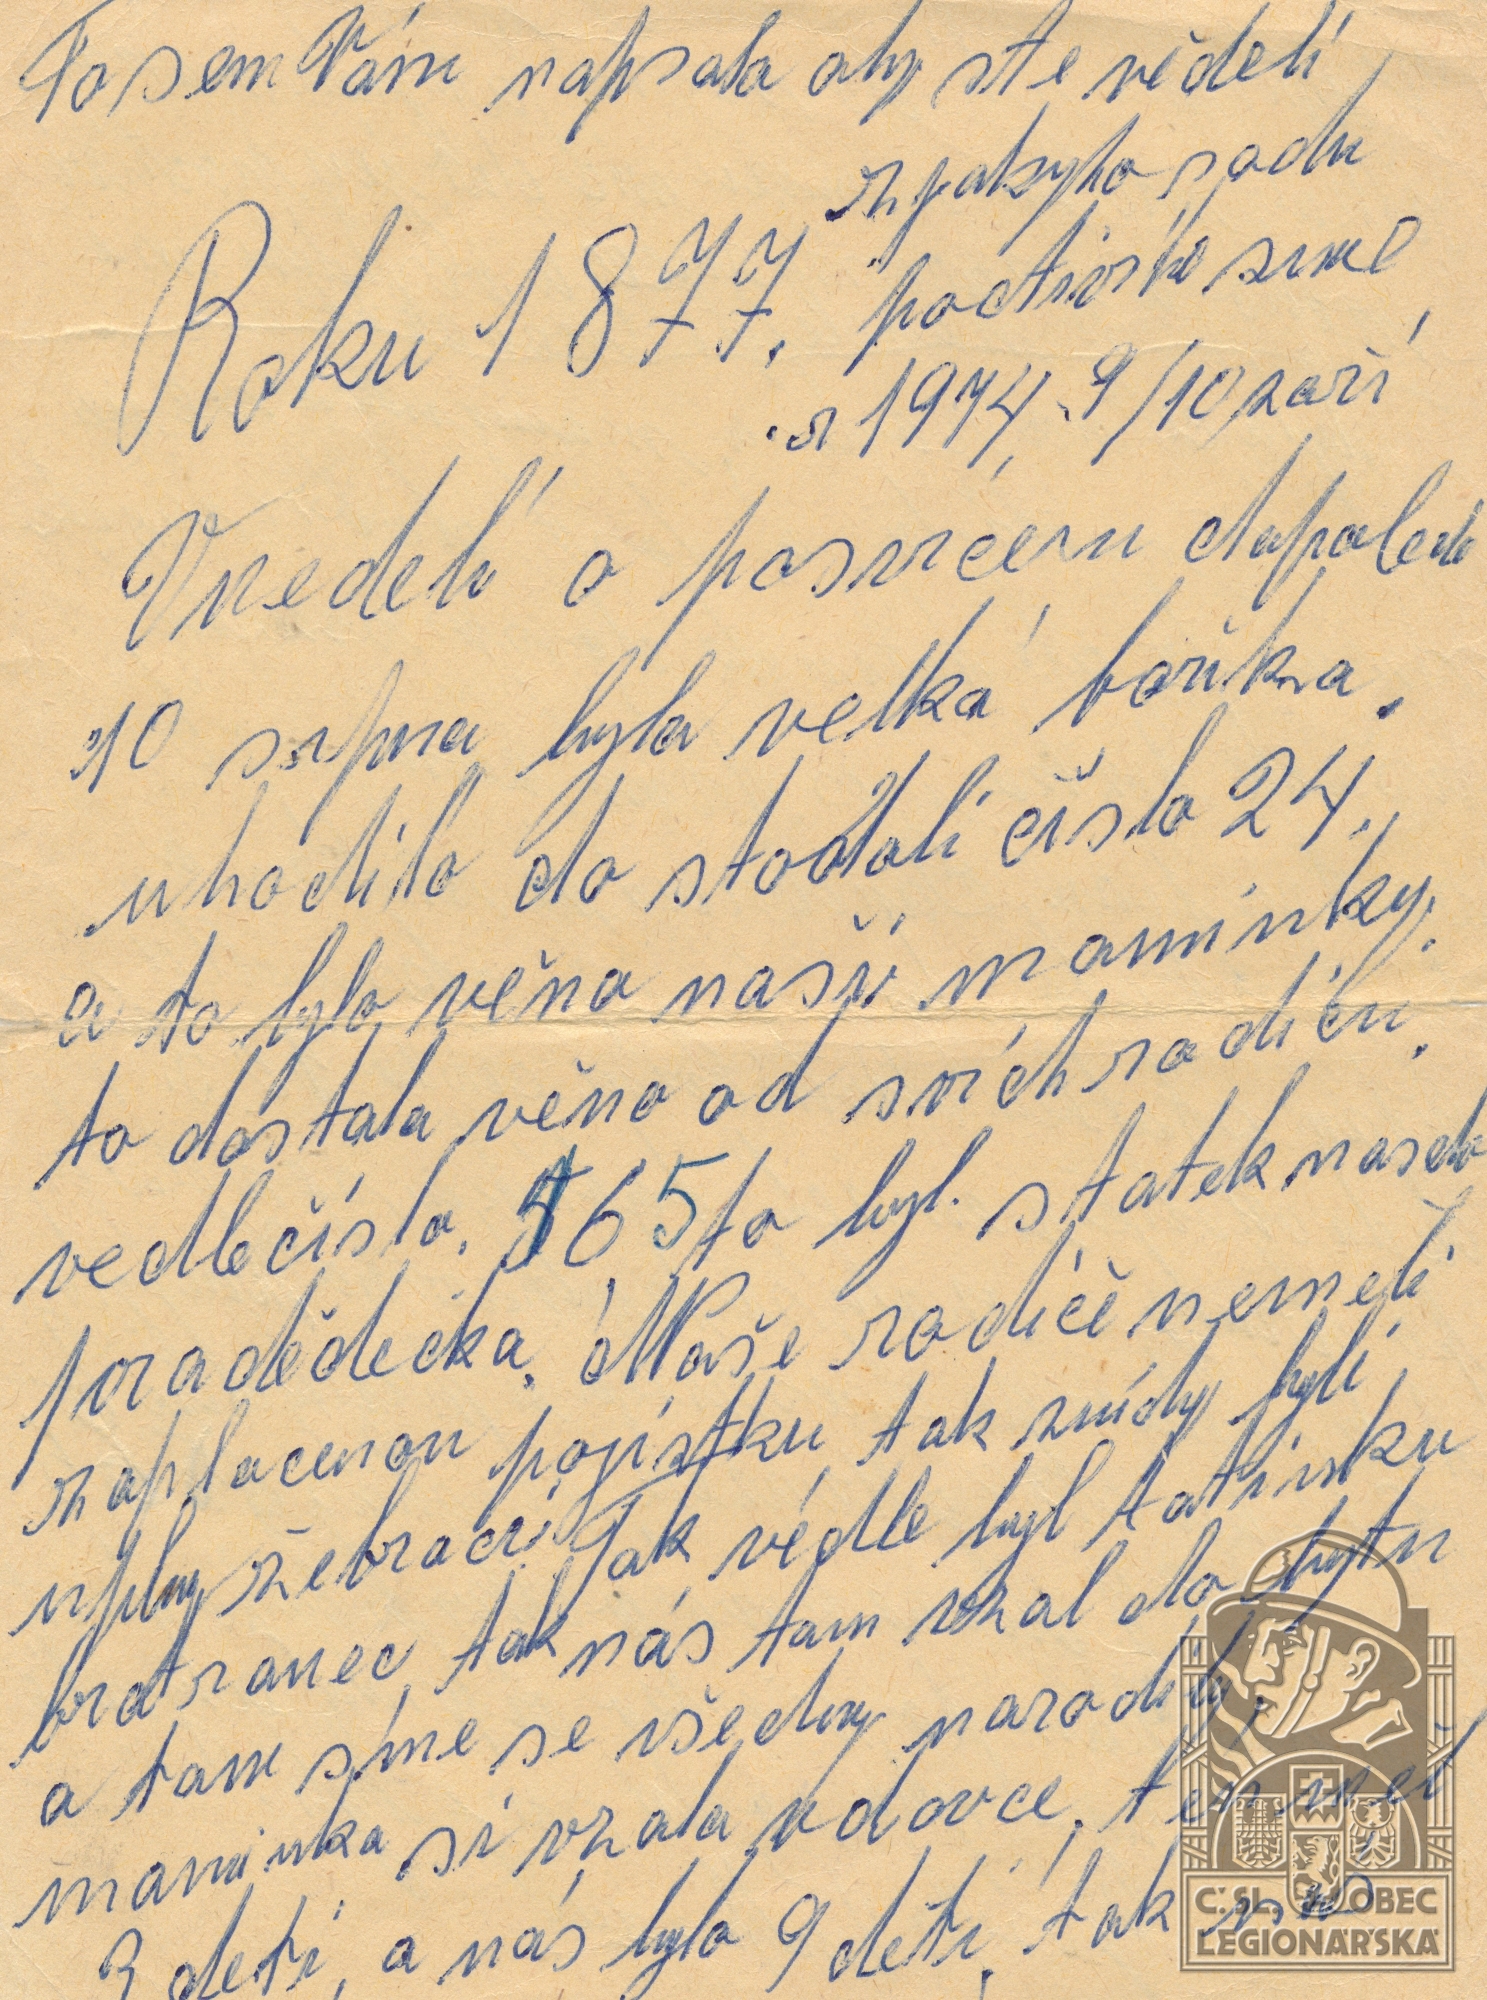 To sem Vám napsala aby ste věděli
z jakyho rodu
poctivíhe sme
Roku 1877.
r 1974, 9/10 zaří
V nedeli o posvícenu dopoled
10 srpna byla velká bouřka.
uhodilo do stodoli číslo 24.
a to bylo věno naší maminky.
to dostala věno od svích rodiču.
vedle číslo. 565 to byl. statek naseho
pradědečka. Naše rodiče nemeli
zaplacenou pojístku tak znídy byli
uplny žebraci. Tak védle byl tatinku
bratranec, tak nás tam vzal do bytu
a tam sme se všechny narodily,
maminka si vzala vdovce, ten mel
3 deti, a nás bylo 9 děti, tak
Č. SL. OBEC
LEGIONÁŘSKÁ